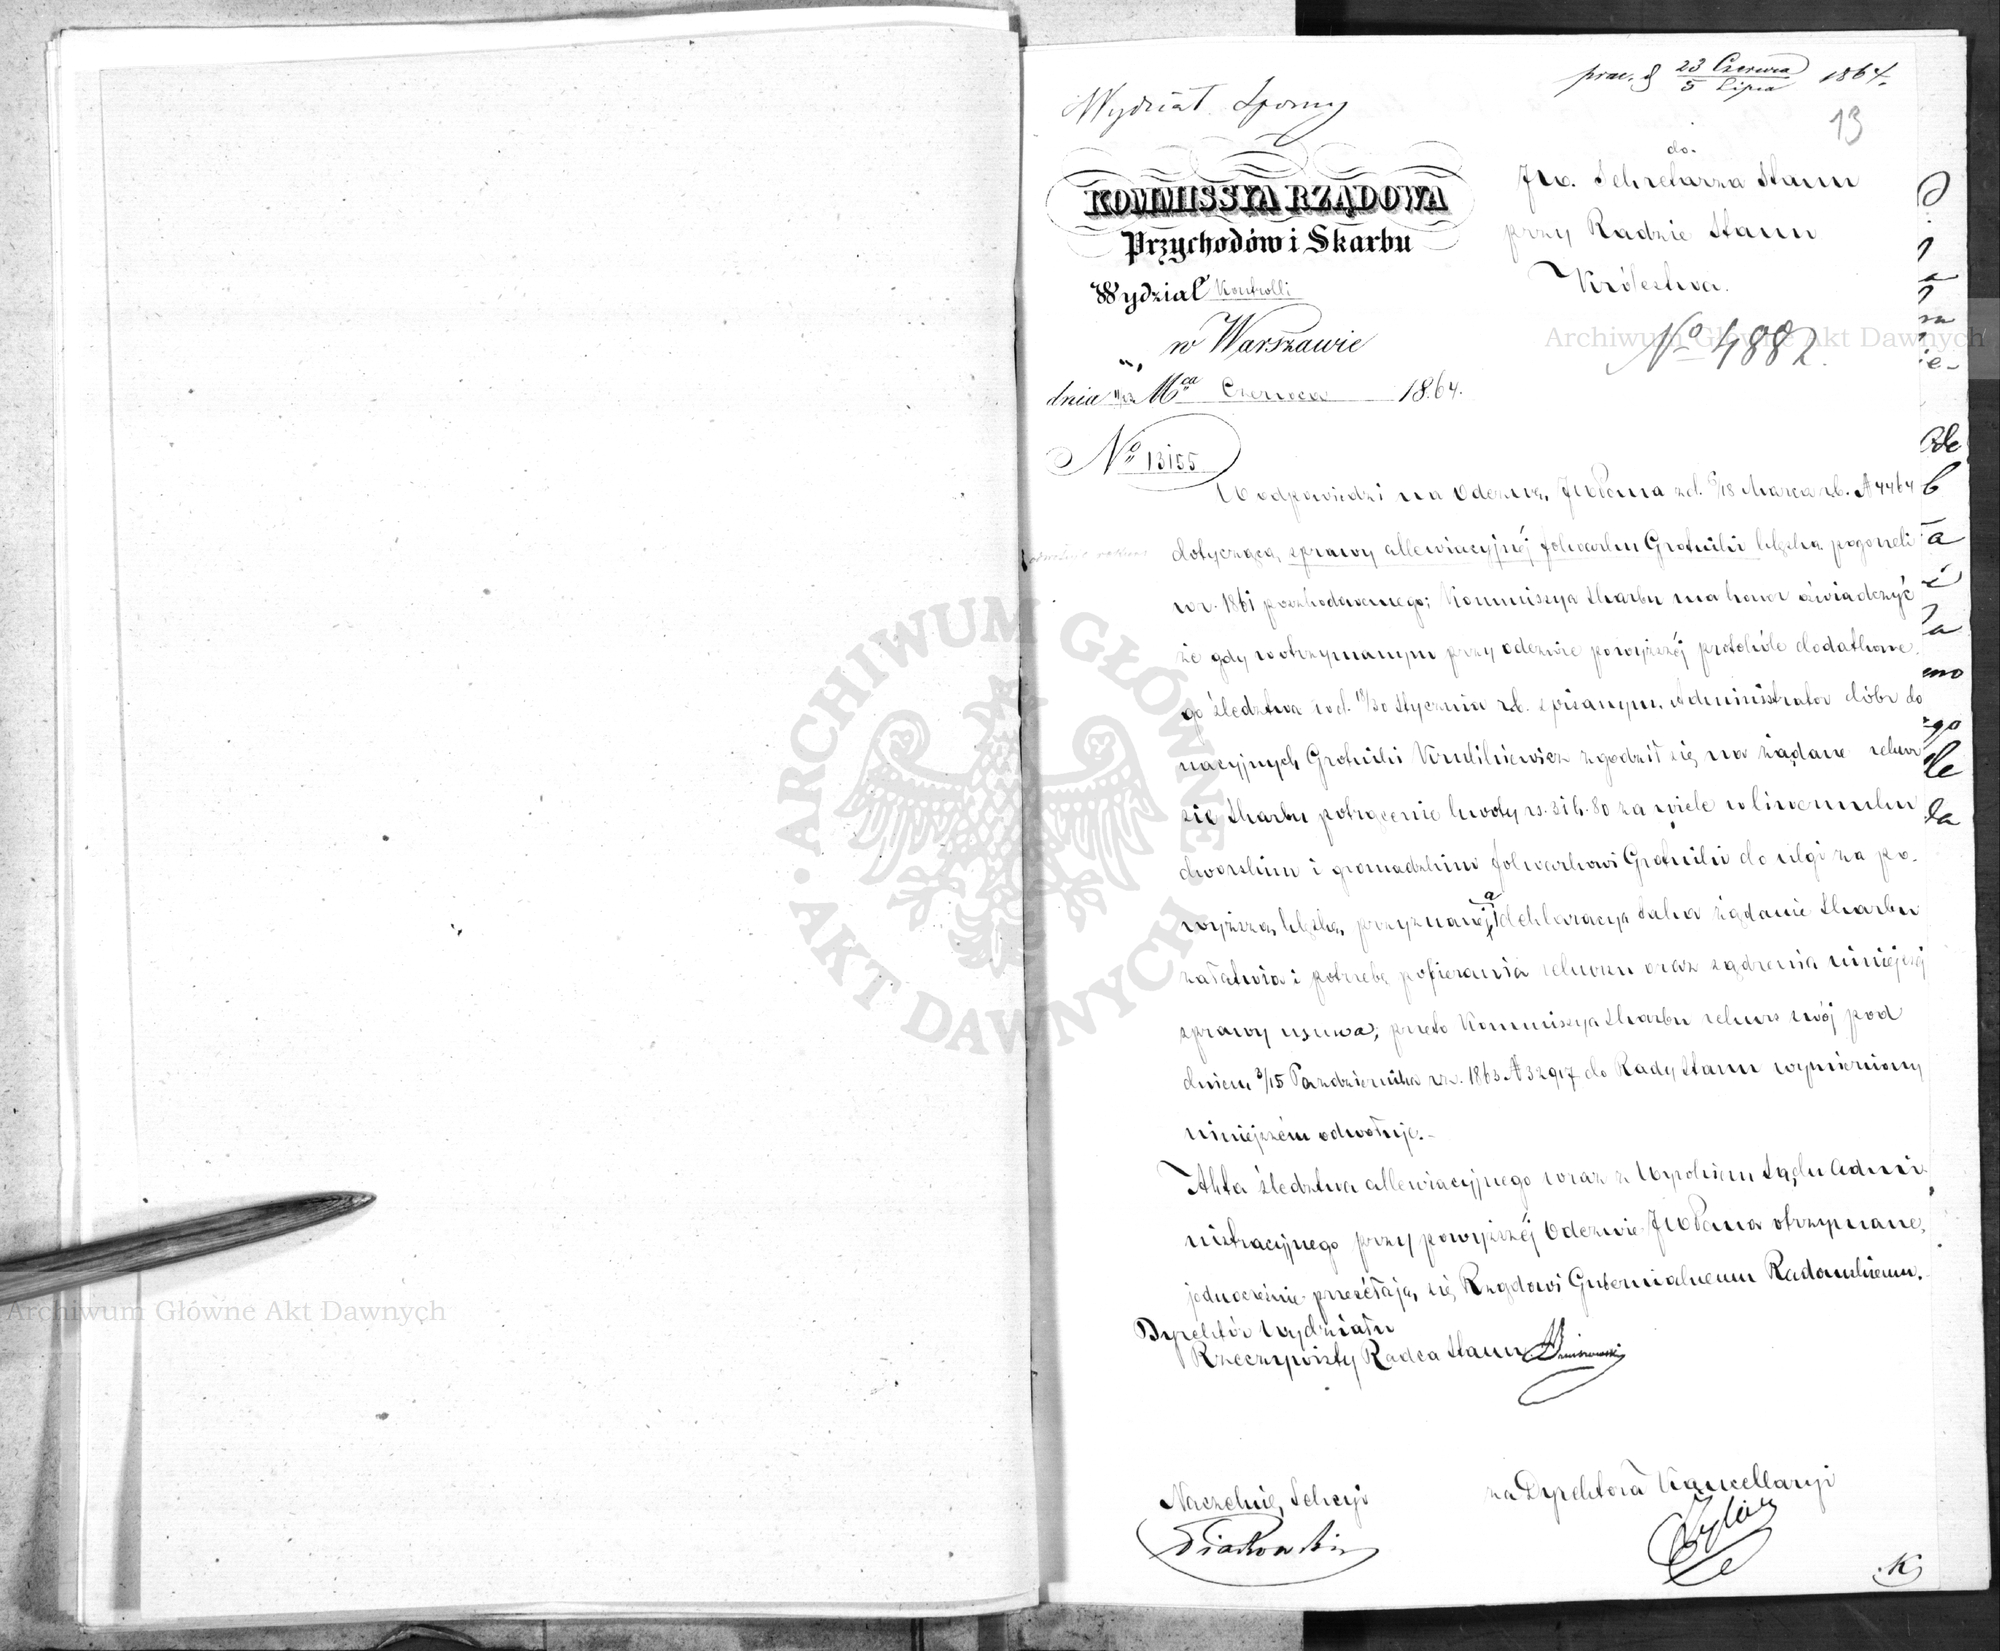 Wydział Sporny
prae. d 23 Czerwca / 5 Lipca 1864.
13
KOMMISSYA RZĄDOWA
Przychodów i Skarbu
Wydział Kontrolli
w Warszawie
dnia Mca Czerwca 1864.
No 13155
do
JW. Sekretarza Stanu
przy Radzie Stanu
Królestwa.
No 4882.
W odpowiedzi na Odezwę JWPana z d. 6/18 Marca r.b. N 4464
dotyczącą sprawy allewiacyjnéj folwarku Grotniki klęską pogorzeli
w r. 1861 poszkodowanego; Kommissya Skarbu ma honor oświadczyć
że gdy w otrzymanym przy odezwie powyższéj protokóle dodatkowe
go śledztwa w d. 18/30 Stycznia r.b. spisanym, Administrator dóbr do
nacyjnych Grotniki zgodził się na żądane rekur
sie Skarbu potrącenie kwoty rs. 316.80 za wiele w liwerunku
dworskim i gromadzkim folwarkowi Grotniki do ulgi za po-
wyższą klęskę przyznanéj, a deklaracya taka żądanie Skarbu
załatwia i potrzebę popierania rekursu oraz sądzenia niniejszéj
sprawy usuwa; przeto Kommissya Skarbu rekurs swój pod
dniem 3/15 Października r.z. 1863 N 32917 do Rady Stanu wymierzony
niniejszém odwołuje.
Akta śledztwa allewiacyjnego wraz z Wyrokiem Sądu Admi
nistracyjnego przy powyższéj Odezwie JWPana otrzymane,
jednocześnie przesełają się Rządowi Gubernialnemu Radomskiemu.
Dyrektór Wydziału
Rzeczywisty Radca Stanu
Naczelnik Sekcyi
Piątkowski
za Dyrektora Kancellaryi
K
Archiwum Główne Akt Dawnych
Archiwum Główne Akt Dawnych
ARCHIWUM GŁÓWNE · AKT DAWNYCH ·